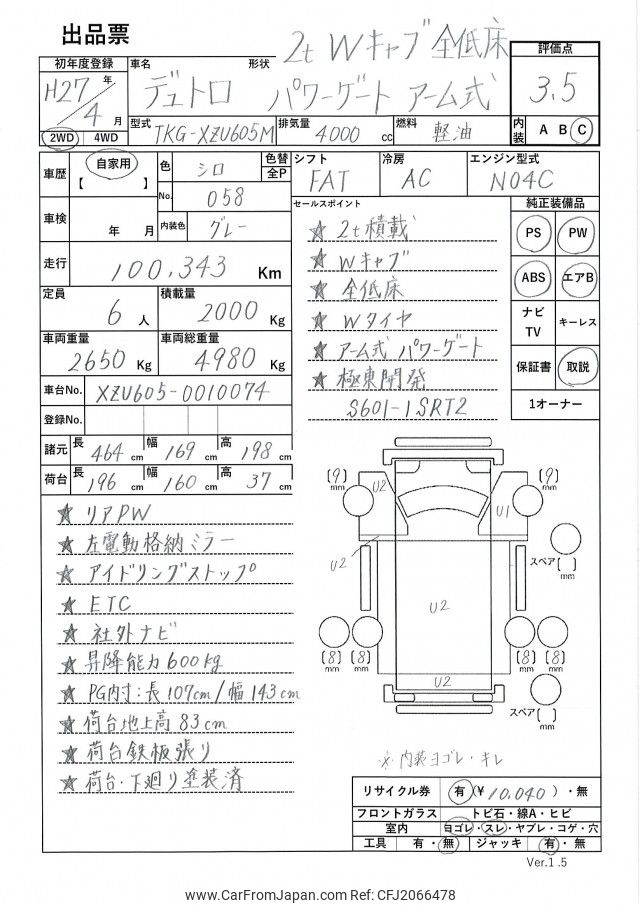 出品票
2t Wキャブ 全低床
初年度登録 車名 形状 評価点
H27年 4月 デュトロ パワーゲート アーム式 3.5
2WD 4WD 型式 TKG-XZU605M 排気量 4000 cc 燃料 軽油 内装 A B C
車歴 自家用 【 】 色 シロ 色替 全P シフト FAT 冷房 AC エンジン型式 N04C
No. 058
車検 年 月 内装色 グレー
セールスポイント 純正装備品
走行 100,343 Km
★ 2t積載
★ Wキャブ
★ 全低床
★ Wタイヤ
★ アーム式 パワーゲート
★ 極東開発
S601-1SRT2
PS PW
ABS エアB
ナビ TV キーレス
保証書 取説
1オーナー
定員 6人 積載量 2000 Kg
車両重量 2650 Kg 車両総重量 4980 Kg
車台No. XZU605-0010074
登録No.
諸元 長 464 cm 幅 169 cm 高 198 cm
荷台 長 196 cm 幅 160 cm 高 37 cm
★ リアPW
★ 左電動格納ミラー
★ アイドリングストップ
★ ETC
★ 社外ナビ
★ 昇降能力600kg
★ PG内寸:長107cm/幅143cm
★ 荷台地上高83cm
★ 荷台鉄板張り
★ 荷台・下廻り塗装済
(9) mm U2 U1 (9) mm
U2 スペア[ ] mm
U2
[8] mm [8] mm [8] mm [8] mm
U2
スペア[ ] mm
※ 内装ヨゴレ・キレ
リサイクル券 有 (¥10,040)・無
フロントガラス トビ石・線A・ヒビ
室内 ヨゴレ・スレ・ヤブレ・コゲ・穴
工具 有・無 ジャッキ 有・無
Ver.1.5
www.CarFromJapan.com Ref: CFJ2066478